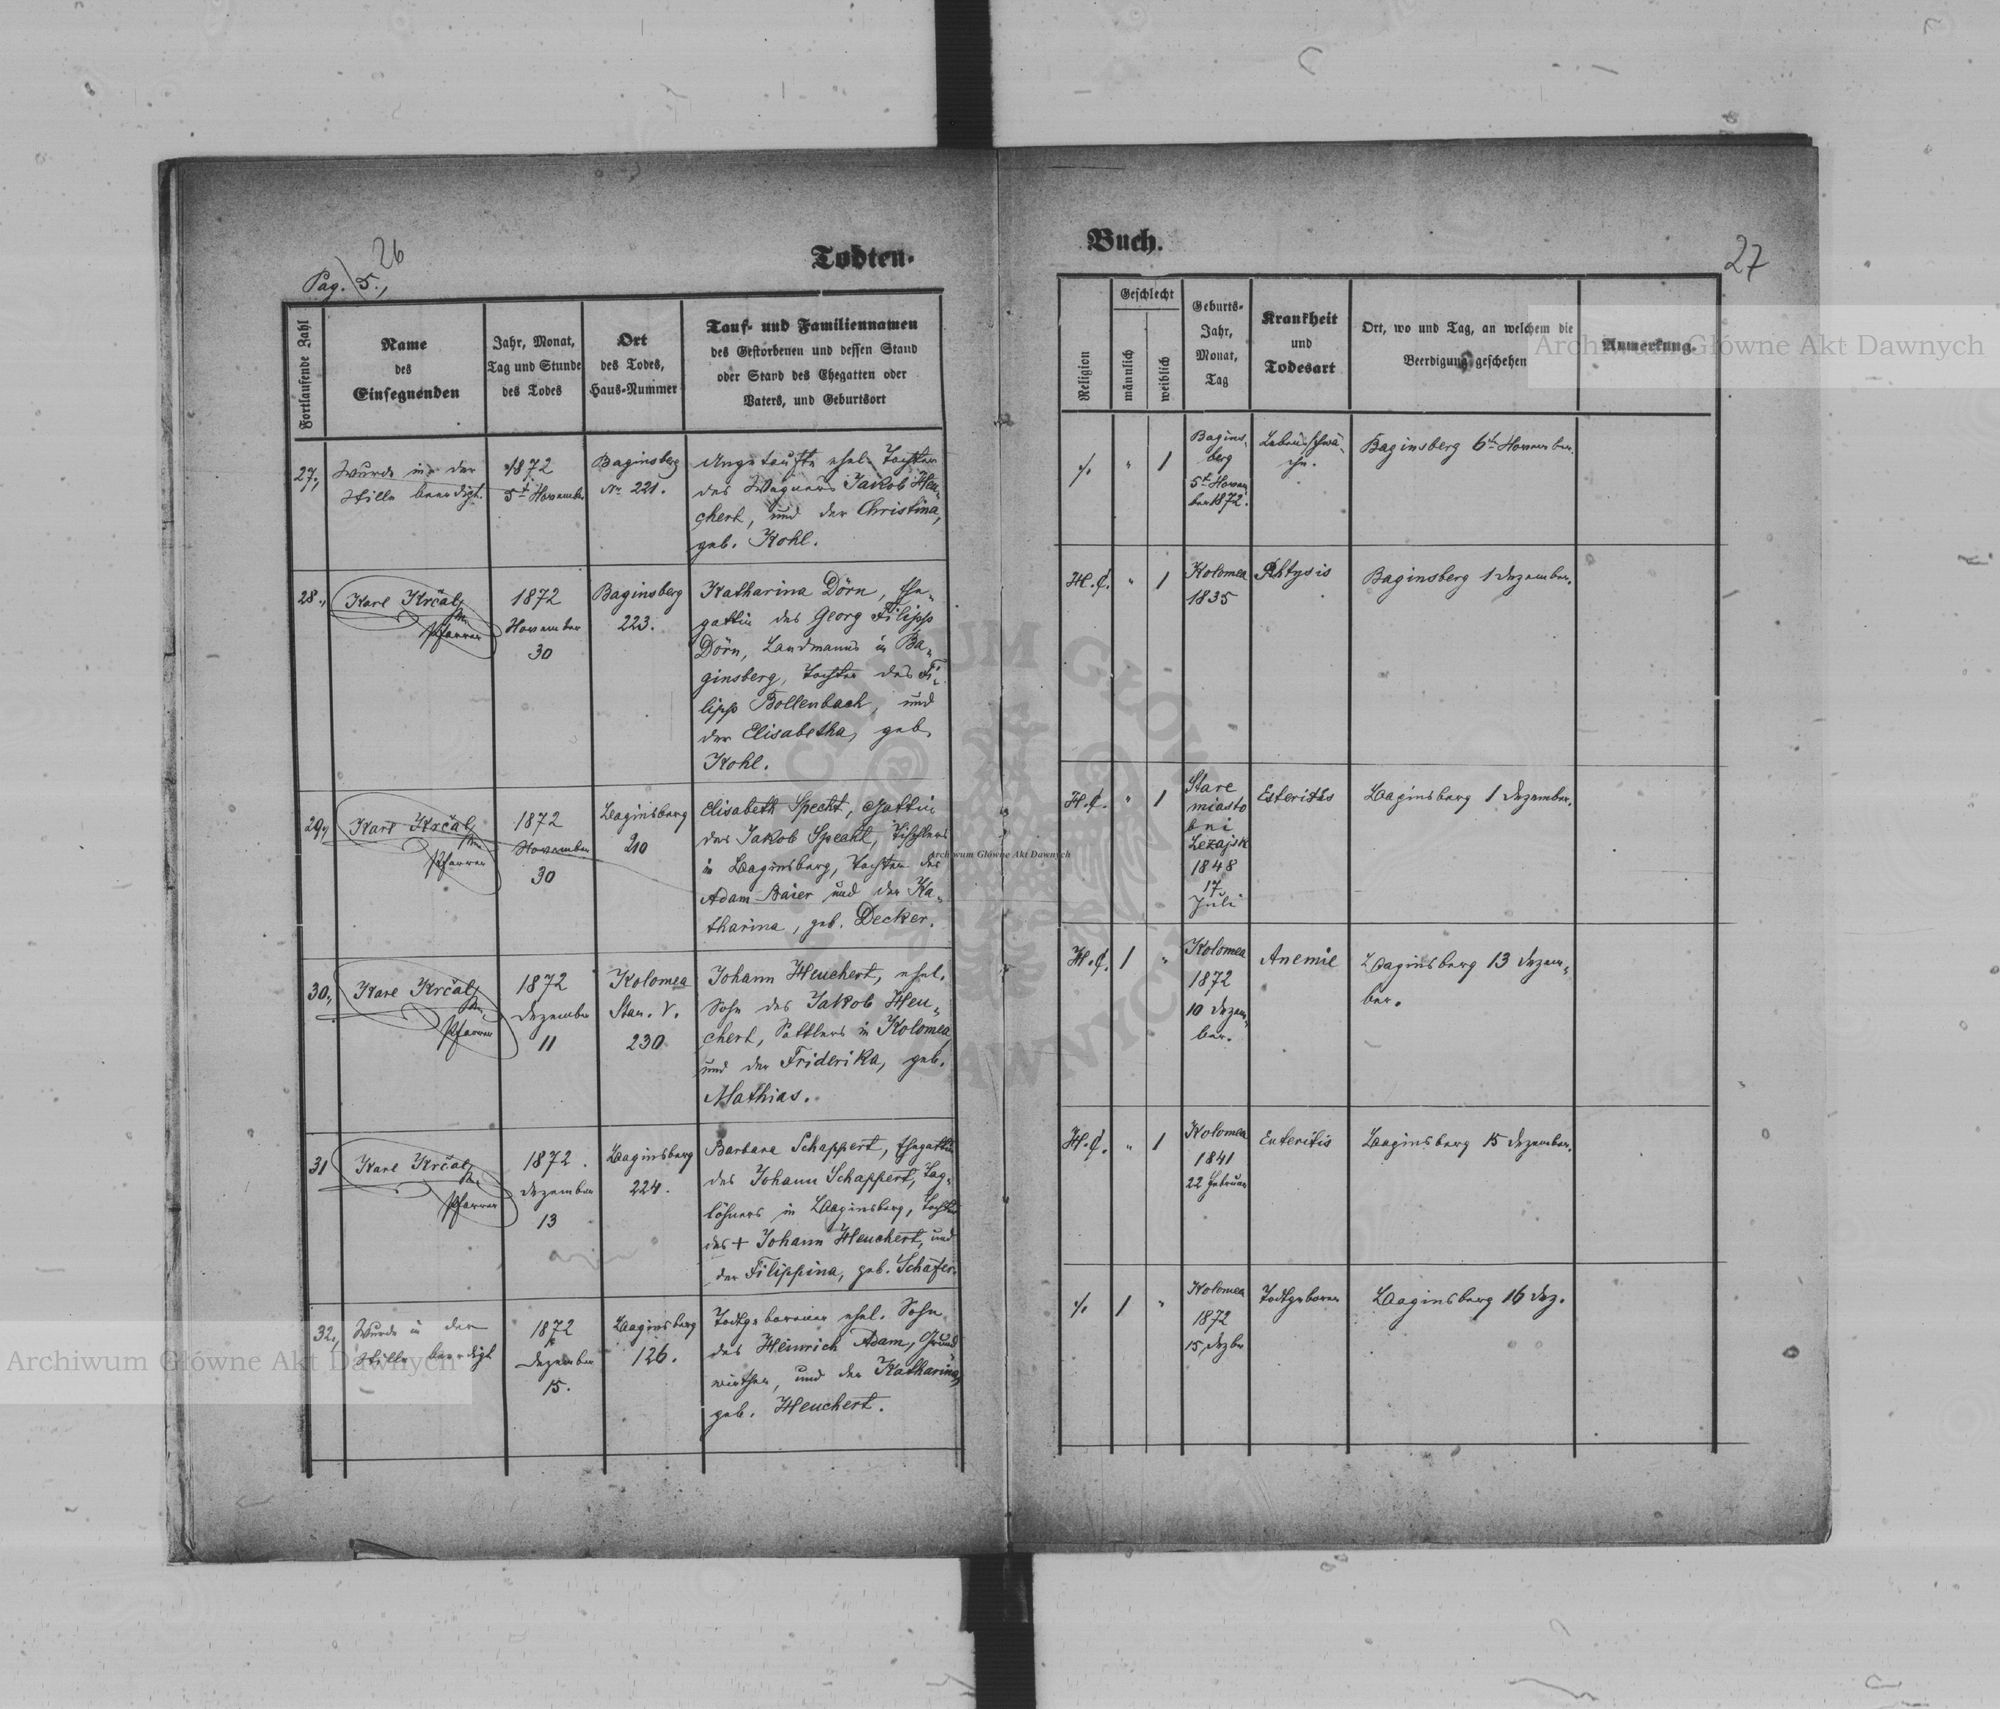 Pag. 5.,
26
Todten-
Fortlaufende Zahl
Name
des
Einsegnenden
Jahr, Monat,
Tag und Stunde
des Todes
Ort
des Todes,
Haus-Nummer
Tauf- und Familiennamen
des Gestorbenen und dessen Stand
oder Stand des Ehegatten oder
Vaters, und Geburtsort
27.,
Wurde in der
Stille beerdigt.
1872
5t November
Baginsberg
Nr. 221.
Ungetaufte ehel. Tochter
des Wagners Jakob Heu-
chert, und der Christina,
geb. Kohl.
28.,
Karl Krčal,
Pfarrer
1872
November
30
Baginsberg
223.
Katharina Dörn, Ehe-
gattin des Georg Filipp
Dörn, Landmanns in Ba-
ginsberg, Tochter des Fi-
lipp Bollenbach, und
der Elisabetha, geb.
Kohl.
29.,
Karl Krčal,
Pfarrer
1872
November
30
Baginsberg
210
Elisabeth Specht, Gattin
des Jakob Specht, Tischlers
in Baginsberg, Tochter des
Adam Baier und der Ka-
tharina, geb. Decker.
30.,
Karl Krčal,
Pfarrer
1872
Dezember
11
Kolomea
Stan. V.
230
Johann Heuchert, ehel.
Sohn des Jakob Heu-
chert, Sattlers in Kolomea
und der Friderika, geb.
Mathias.
31
Karl Krčal,
Pfarrer
1872.
Dezember
13
Baginsberg
224.
Barbara Schappert, Ehegattin
des Johann Schappert, Tag-
löhners in Baginsberg, Tochter
des + Johann Heuchert, und
der Filippina, geb. Schäfer.
32.,
Wurde in der
Stille beerdigt
1872
Dezember
15.
Baginsberg
126.
Todtgeborener ehel. Sohn
des Heinrich Adam, Grund
wirthen, und der Katharina,
geb. Heuchert.
Buch.
27
Religion
Geschlecht
männlich
weiblich
Geburts-
Jahr,
Monat,
Tag
Krankheit
und
Todesart
Ort, wo und Tag, an welchem die
Beerdigung geschehen
Anmerkung.
·/. " 1
Bagins-
berg
5t Novem
ber 1872.
Lebensschwä-
che.
Baginsberg 6t November.
H.C. " 1
Kolomea
1835
Phtysis
Baginsberg 1 Dezember.
H.C. " 1
Stare
miasto
bei
Lezajsk
1848
17
Juli
Enteritis
Baginsberg 1 Dezember.
H.C. 1 "
Kolomea
1872
10 Dezem-
ber.
Anemie
Baginsberg 13 Dezem-
ber.
H.C. " 1
Kolomea
1841
22 Februar
Enteritis
Baginsberg 15 Dezember.
·/. 1 "
Kolomea
1872
15 Dezbr
Todtgeboren
Baginsberg 16 Dez.
Archiwum Główne Akt Dawnych
Archiwum Główne Akt Dawnych
Archiwum Główne Akt Dawnych
ARCHIWUM GŁÓWNE AKT DAWNYCH